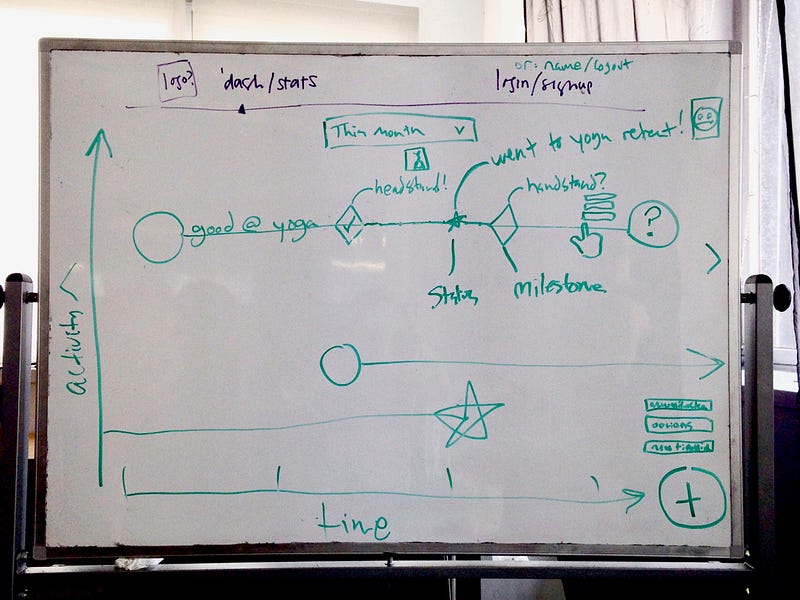 or: name/logout
logo?
dash/stats
login/signup
This month
went to yoga retreat!
headstand!
handstand?
good @ yoga
?
Status
Milestone
activity
options
+
time